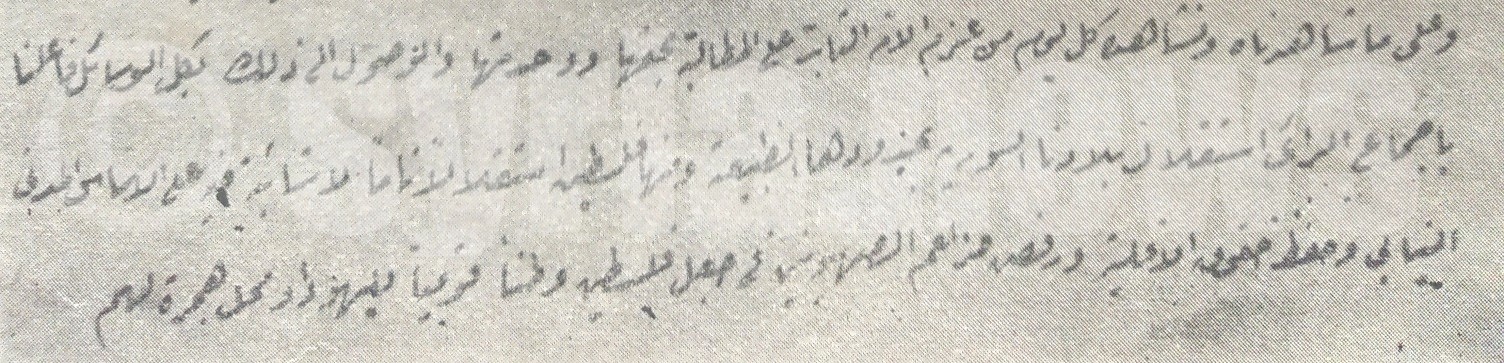 وعلى ما شاهدناه ونشاهده كل يوم من عزم الامة الثابت على المطالبة بحقها ووحدتها والوصول الى ذلك بكل الوسائل فاعلنا
باجماع الرأي استقلال بلادنا السورية بحدودها الطبيعية ومنها فلسطين استقلالاً تاماً لا شائبة فيه على الاساس المدني
النيابي وحفظ حقوق الاقلية ورفض مزاعم الصهيونيين في جعل فلسطين وطناً قومياً لليهود أو محل هجرة لهم